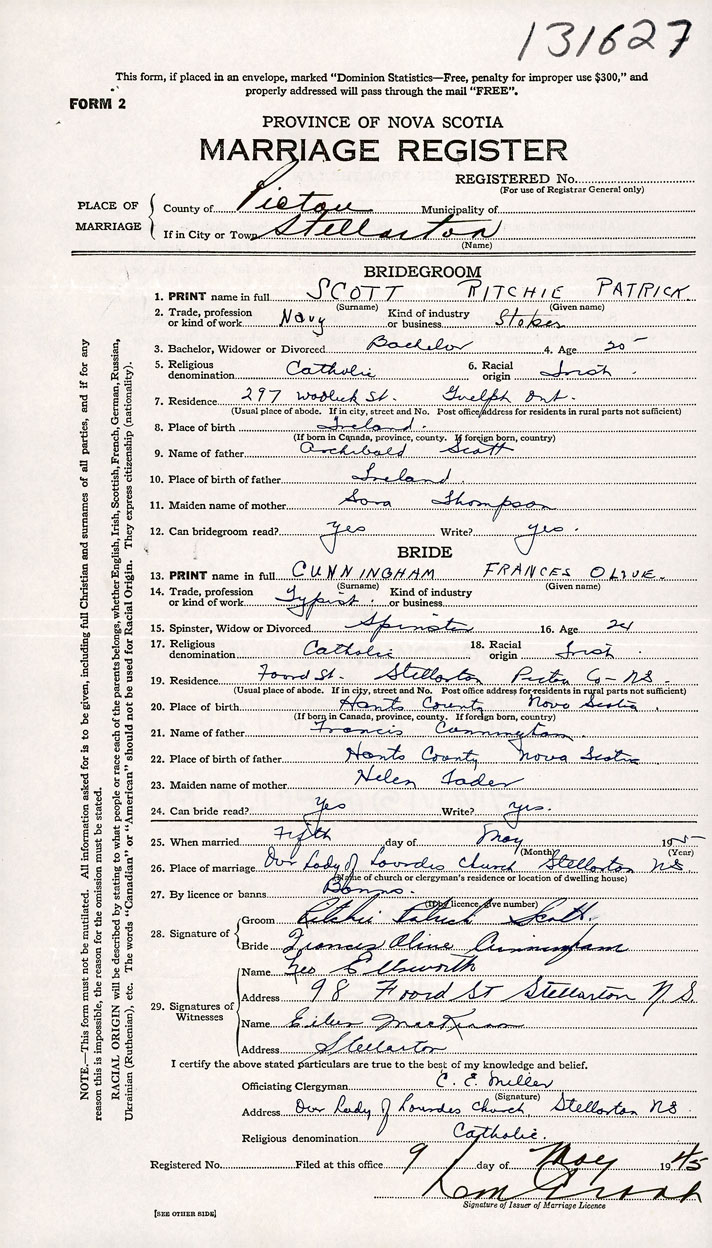 131627
This form, if placed in an envelope, marked "Dominion Statistics—Free, penalty for improper use $300," and
properly addressed will pass through the mail "FREE".
FORM 2
PROVINCE OF NOVA SCOTIA
MARRIAGE REGISTER
REGISTERED No.
(For use of Registrar General only)
PLACE OF MARRIAGE
County of Pictou Municipality of
If in City or Town Stellarton
(Name)
BRIDEGROOM
1. PRINT name in full SCOTT RITCHIE PATRICK
(Surname) (Given name)
2. Trade, profession or kind of work Navy Kind of industry or business Stoker
3. Bachelor, Widower or Divorced Bachelor 4. Age 20
5. Religious denomination Catholic 6. Racial origin Irish
7. Residence 297 St. Guelph Ont.
(Usual place of abode. If in city, street and No. Post office address for residents in rural parts not sufficient)
8. Place of birth Ireland.
(If born in Canada, province, county. If foreign born, country)
9. Name of father Archibald Scott
10. Place of birth of father Ireland
11. Maiden name of mother Thompson
12. Can bridegroom read? Yes Write? yes.
BRIDE
13. PRINT name in full CUNNINGHAM FRANCES OLIVE.
(Surname) (Given name)
14. Trade, profession or kind of work Typist. Kind of industry or business
15. Spinster, Widow or Divorced Spinster 16. Age 24
17. Religious denomination Catholic 18. Racial origin Irish
19. Residence Foord St. Stellarton Pictou Co- NS
(Usual place of abode. If in city, street and No. Post office address for residents in rural parts not sufficient)
20. Place of birth Hants County Nova Scotia.
(If born in Canada, province, county. If foreign born, country)
21. Name of father Francis Cunningham.
22. Place of birth of father Hants County Nova Scotia
23. Maiden name of mother Helen
24. Can bride read? Yes Write? yes.
25. When married Fifth day of May 19
(Month) (Year)
26. Place of marriage Our Lady of Lourdes Church Stellarton NS
(Name of church or clergyman's residence or location of dwelling house)
27. By licence or banns Banns.
(If by licence, give number)
28. Signature of
Groom Ritchie Patrick Scott.
Bride Frances Olive Cunningham
29. Signatures of Witnesses
Name Geo Ellsworth
Address 98 Foord St Stellarton N.S.
Name Eileen
Address Stellarton
I certify the above stated particulars are true to the best of my knowledge and belief.
Officiating Clergyman C. E. Miller
(Signature)
Address Our Lady of Lourdes Church Stellarton NS.
Religious denomination Catholic.
Registered No. Filed at this office 9 day of May 1945
Signature of Issuer of Marriage Licence
[SEE OTHER SIDE]
NOTE.—This form must not be mutilated. All information asked for is to be given, including full Christian and surnames of all parties, and if for any
reason this is impossible, the reason for the omission must be stated.
RACIAL ORIGIN will be described by stating to what people or race each of the parents belongs, whether English, Irish, Scottish, French, German, Russian,
Ukrainian (Ruthenian), etc. The words "Canadian" or "American" should not be used for Racial Origin. They express citizenship (nationality).